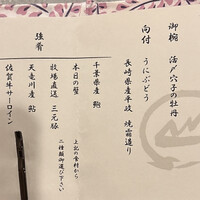 御椀　活〆穴子の牡丹
向付　うにぶどう
長崎県産平政　焼霜造り
強肴
千葉県産　鮑
本日の蟹
牧場直送　三元豚
天竜川産　鮎
佐賀牛サーロイン
上記の食材から
二種類御選び下さい